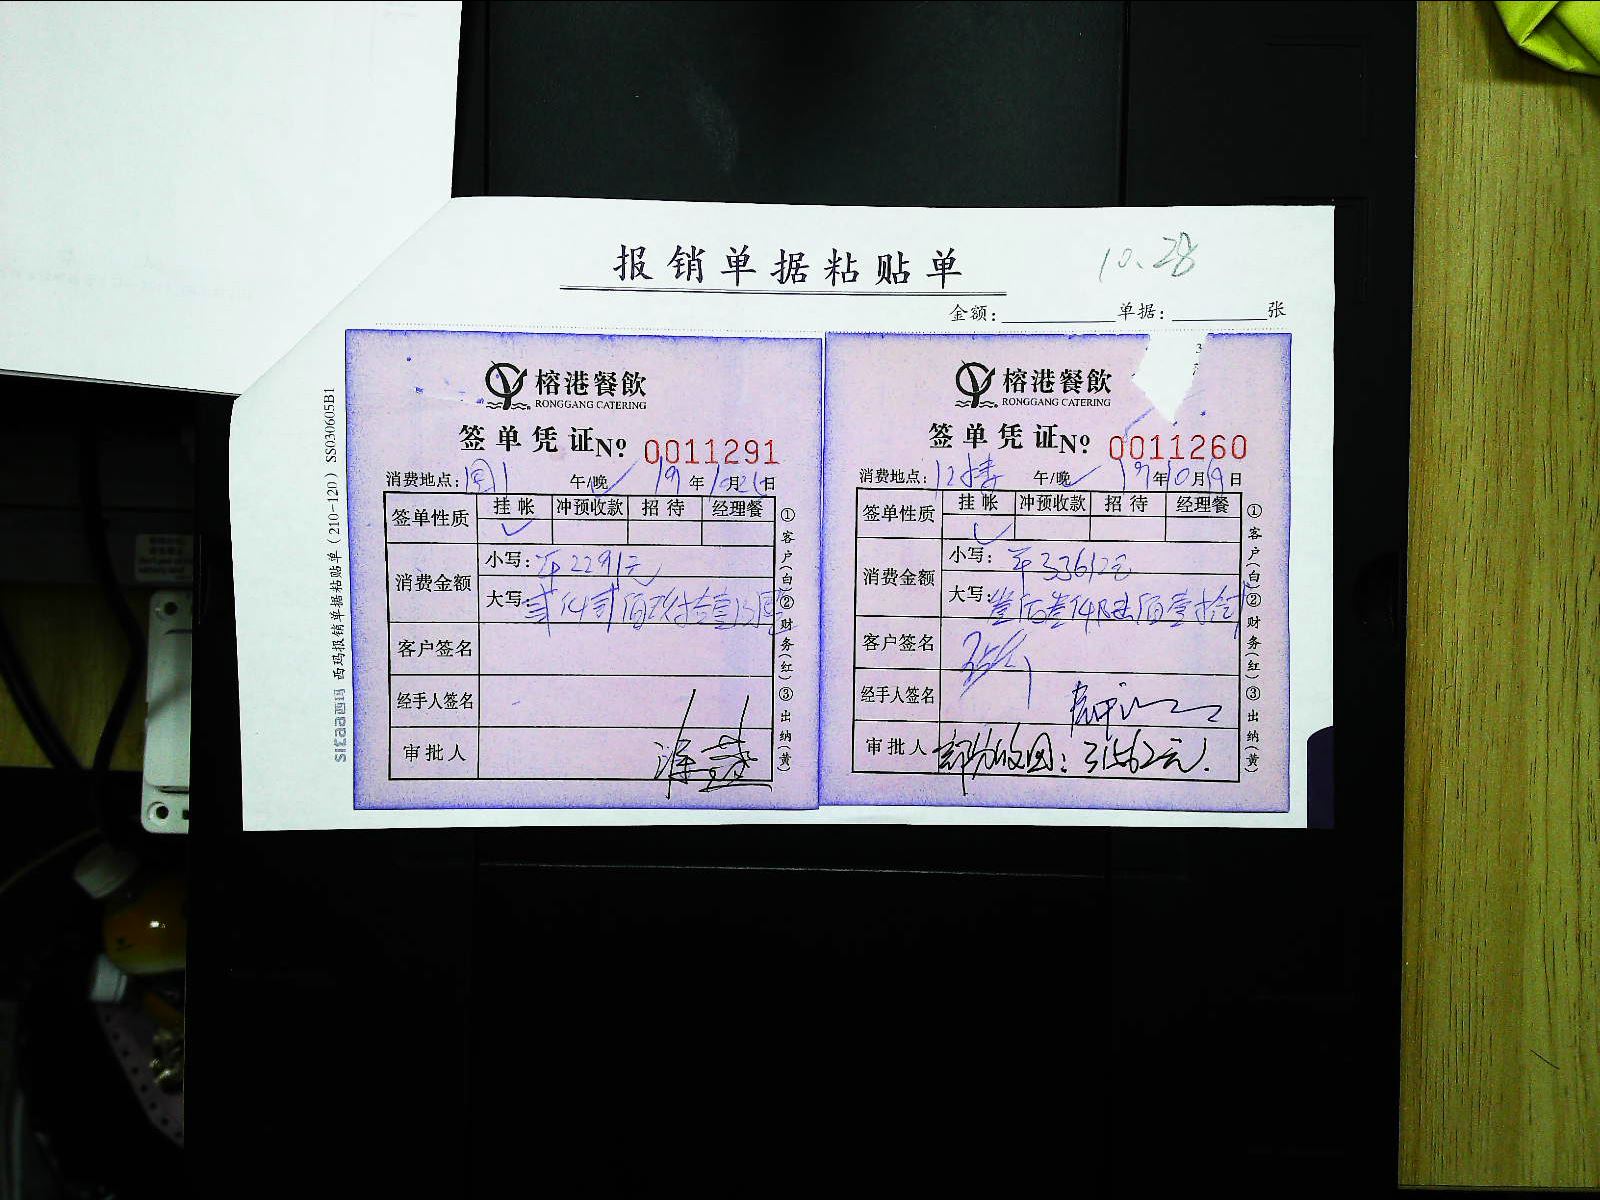 报销单据粘贴单
10.28
金额: 单据: 张
SS030605B1
西玛报销单据粘贴单 (210-120)
simaa西玛
榕港餐飲
RONGGANG CATERING
签单凭证 No 0011291
消费地点: 午/晚 19年10月 日
签单性质 挂帐 冲预收款 招待 经理餐
消费金额 小写: 2291元
大写:
客户签名
经手人签名
审批人
①客户(白)②财务(红)③出纳(黄)
榕港餐飲
RONGGANG CATERING
签单凭证 No 0011260
消费地点: 12楼 午/晚 19年10月19日
签单性质 挂帐 冲预收款 招待 经理餐
消费金额 小写: 33612元
大写:
客户签名
经手人签名
审批人 部分收回: 31562元.
①客户(白)②财务(红)③出纳(黄)